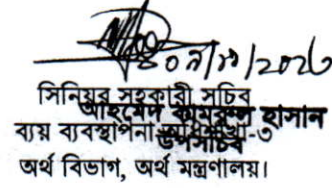 সিনিয়র সহকারী সচিব
আহমেদ কামরুল হাসান
ব্যয় ব্যবস্থাপনা
-৩
উপসচিব
অর্থ বিভাগ, অর্থ মন্ত্রণালয়।